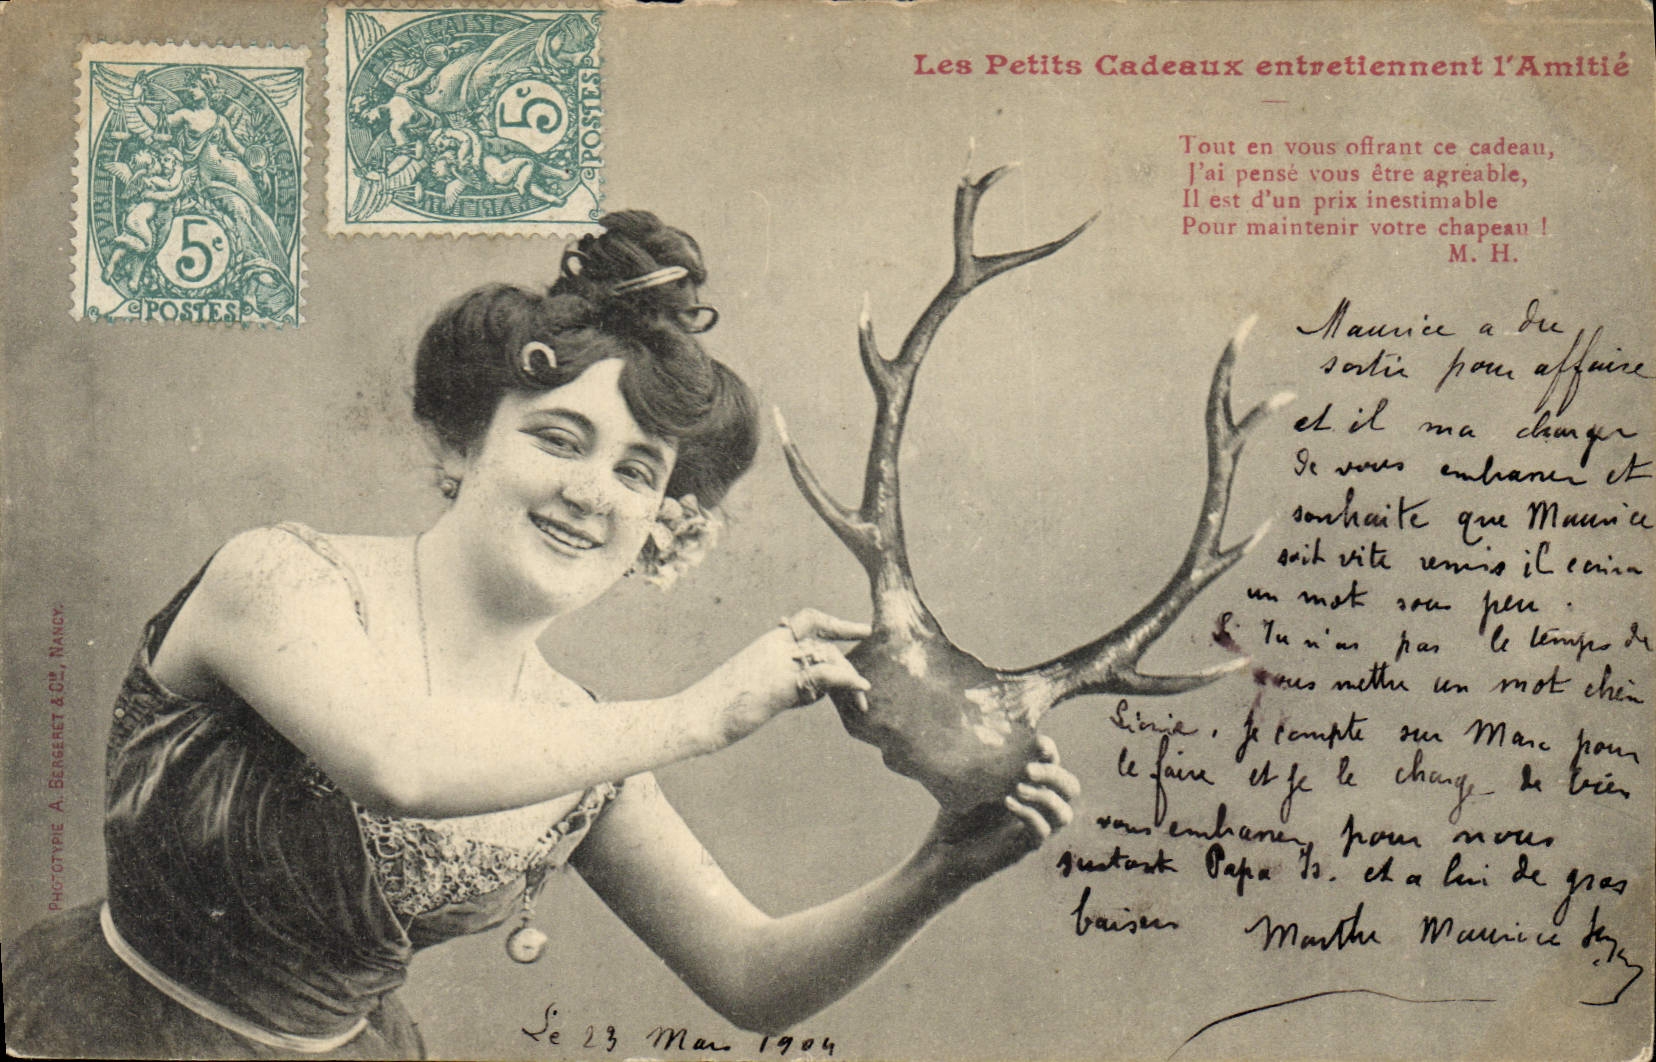 Les Petits Cadeaux entretiennent l'Amitié
Tout en vous offrant ce cadeau,
J'ai pensé vous être agréable,
Il est d'un prix inestimable
Pour maintenir votre chapeau !
M. H.
Maurice a du
sortir pour affaire
et il ma charger
de vous embrasser et
souhaite que Maurice
soit vite remis il ecrira
un mot sous peu.
Si Tu n'as pas le temps de
nous mettre un mot chère
je compte sur Marc pour
le faire et je le charge de bien
vous embrasser pour nous
surtout Papa Is. et a lui de gros
baisers Marthe Maurice
Le 23 Mars 1904
PHOTOTYPIE A. BERGERET & Cie, NANCY.
RÉPUBLIQUE FRANÇAISE
5c
POSTES
RÉPUBLIQUE FRANÇAISE
5c
POSTES